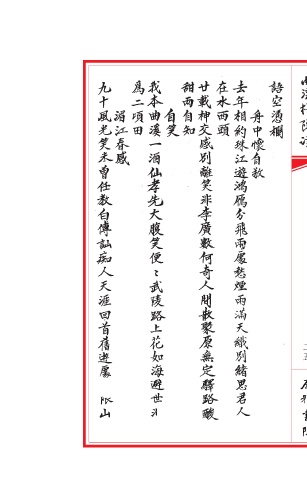 語空憑欄
舟中懷自敬
去年相約珠江遊鴻雁分飛兩處愁煙雨滿天織別緒思君人
在水西頭
廿載神交感別離笑非李廣數何奇人間散聚原無定驛路酸
甜兩自知
自笑
我本曲溪一酒仙孝先大腹笑便便武陵路上花如海避世
為二頃田
湄江春感
九十風光笑未曾任教白傅訕痴人天涯回首舊遊處 山